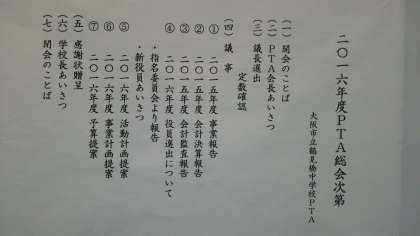 二〇一六年度PTA総会次第
大阪市立鶴見橋中学校PTA
(一) 開会のことば
(二) PTA会長あいさつ
(三) 議長選出
定数確認
(四) 議事
① 二〇一五年度 事業報告
② 二〇一五年度 会計決算報告
③ 二〇一五年度 会計監査報告
④ 二〇一六年度 役員選出について
・指名委員会より報告
・新役員あいさつ
⑤ 二〇一六年度 活動計画提案
⑥ 二〇一六年度 事業計画提案
⑦ 二〇一六年度 予算提案
(五) 感謝状贈呈
(六) 学校長あいさつ
(七) 閉会のことば